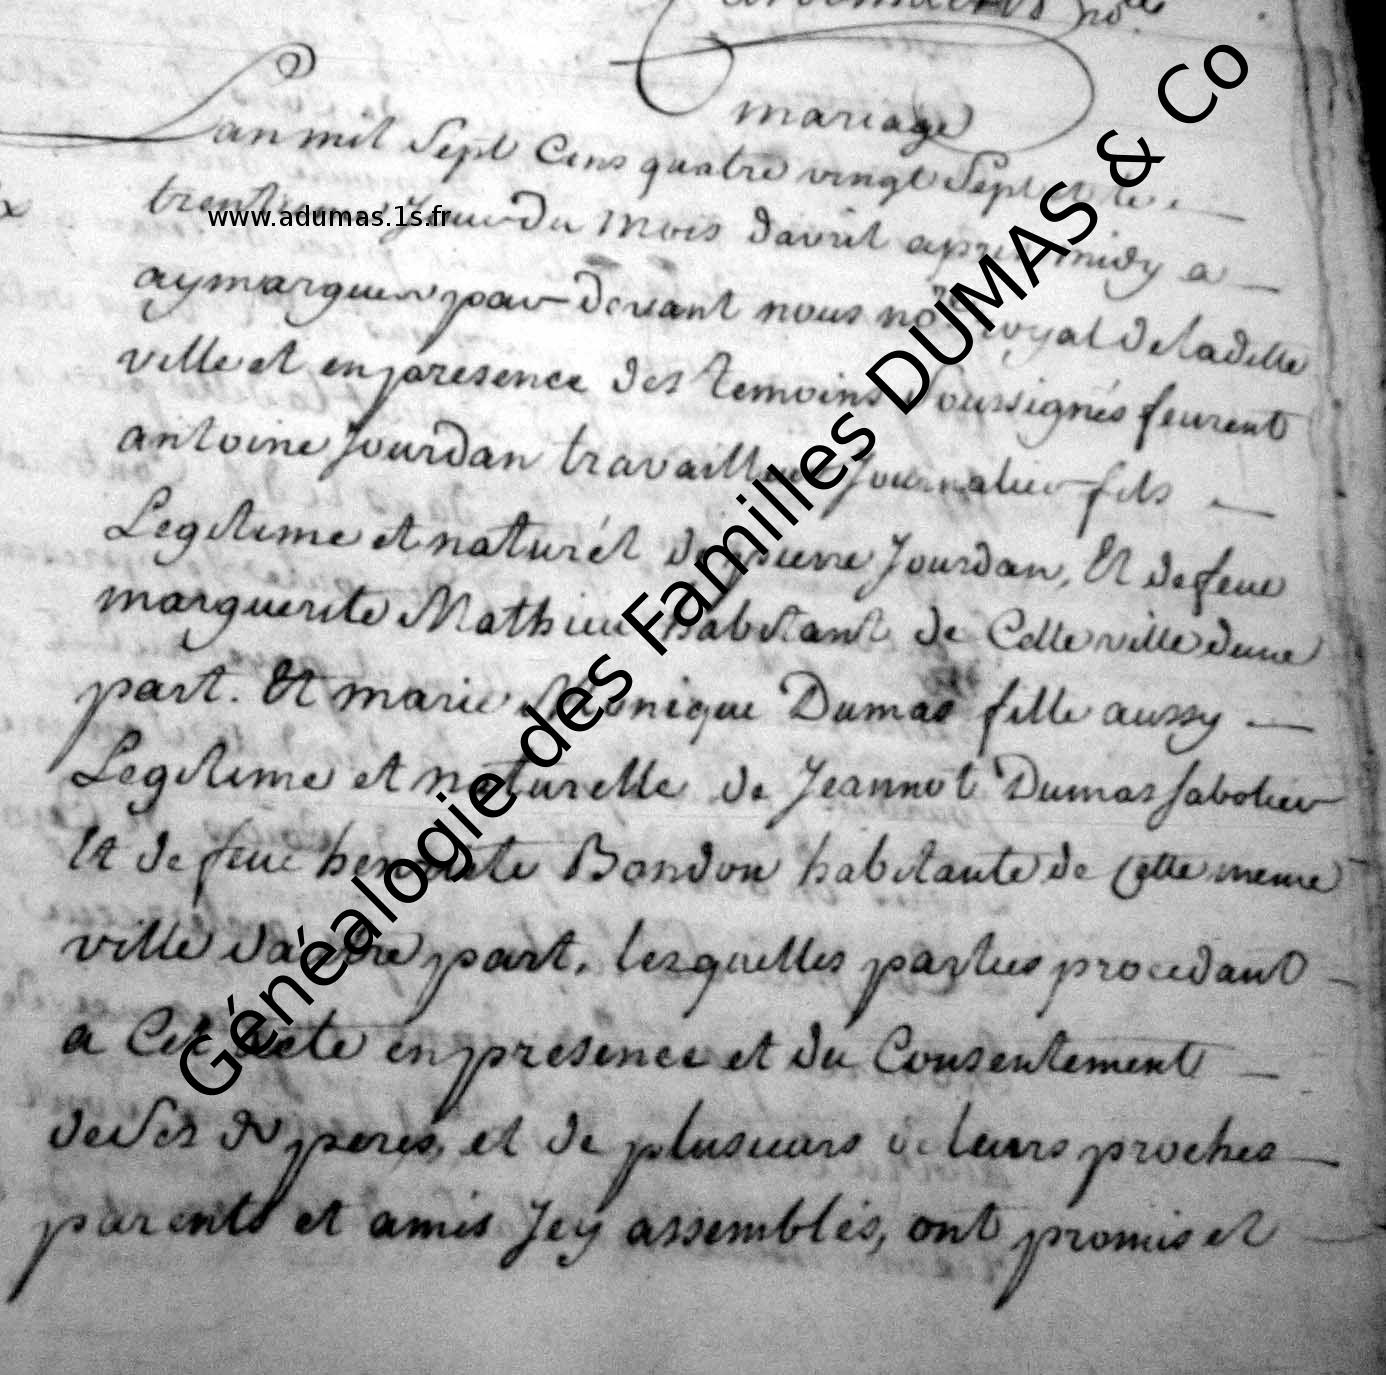 mariage
Lan mil Sept Cens quatre vingt Sept et le
jour du mois davril apres midy a
aymargues par devant nous no.re royal deladitte
ville et en presence des temoins Soussignés feurent
antoine Jourdan travailleur Journalier fils
Legitime et naturél de pierre Jourdan, Et de feue
marguerite Mathieu habitant de Cette ville dune
part. Et marie Monique Dumas fille aussy
Legitime et naturelle de Jeannot Dumas fabotier
Et de feue henriete Bondon habitante de Cette meme
ville dautre part, lesquelles parties procedant
a Cet acte en presence et du Consentement
de Ses d. peres, et de plusieurs de leurs proches
parents et amis Jcy assemblés, ont promis et
www.adumas.1s.fr
Généalogie des Familles DUMAS & Co